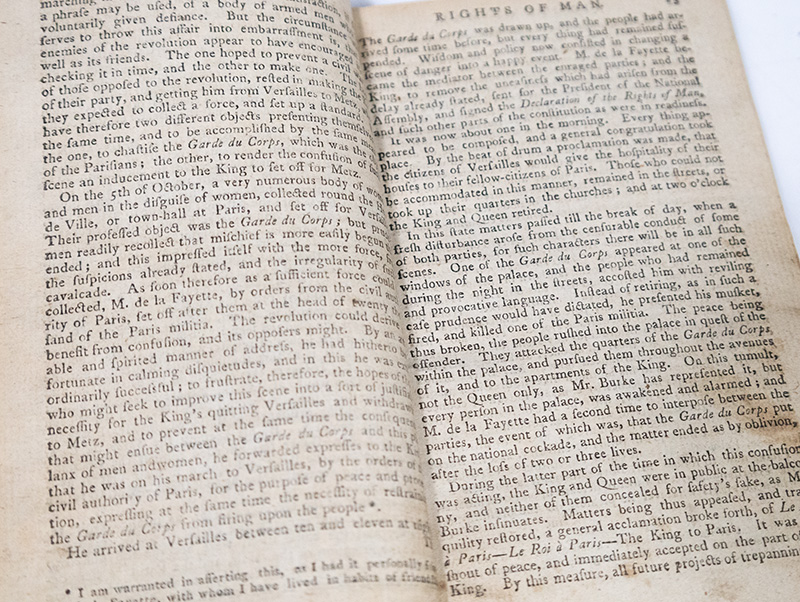 marching in
a phrase may be used, of a body of armed men
voluntarily given defiance. But the circumstance
serves to throw this affair into embarrassment is,
enemies of the revolution appear to have encouraged
well as its friends. The one hoped to prevent a civil
checking it in time, and the other to make one. The
of those opposed to the revolution, rested in making the
of their party, and getting him from Versailles to Metz,
they expected to collect a force, and set up a standard.
have therefore two different objects presenting themselves
the same time, and to be accomplished by the same
the one, to chastise the Garde du Corps, which was the
of the Parisians; the other, to render the confusion of
scene an inducement to the King to set off for Metz.
On the 5th of October, a very numerous body of
and men in the disguise of women, collected round the
de Ville, or town-hall at Paris, and set off for Versailles
Their professed object was the Garde du Corps; but
men readily recollect that mischief is more easily begun
ended; and this impressed itself with the more force,
the suspicions already stated, and the irregularity of
cavalcade. As soon therefore as a sufficient force could
collected, M. de la Fayette, by orders from the civil
rity of Paris, set off after them at the head of twenty
sand of the Paris militia. The revolution could derive
benefit from confusion, and its opposers might. By an
able and spirited manner of address, he had hitherto
fortunate in calming disquietudes, and in this he was
ordinarily successful; to frustrate, therefore, the hopes of
who might seek to improve this scene into a sort of
necessity for the King's quitting Versailles and withdraw
to Metz, and to prevent at the same time the consequ
that might ensue between the Garde du Corps and this
lanx of men andwomen, he forwarded expresses to the
that he was on his march to Versailles, by the orders of
civil authority of Paris, for the purpose of peace and
tion, expressing at the same time the necessity of restrain
the Garde du Corps from firing upon the people*.
He arrived at Versailles between ten and eleven at
* I am warranted in asserting this, as I had it personally
Fayette, with whom I have lived in habits of
RIGHTS OF MAN.
The Garde du Corps was drawn up, and the people had ar-
rived some time before, but every thing had remained sus-
pended. Wisdom and policy now consisted in changing a
scene of danger into a happy event. M. de la Fayette be-
came the mediator between the enraged parties; and the
King, to remove the uneasiness which had arisen from the
delay already stated, sent for the President of the National
Assembly, and signed the Declaration of the Rights of Man,
and such other parts of the constitution as were in readiness.
It was now about one in the morning. Every thing ap-
peared to be composed, and a general congratulation took
place. By the beat of drum a proclamation was made, that
the citizens of Versailles would give the hospitality of their
houses to their fellow-citizens of Paris. Those who could not
be accommodated in this manner, remained in the streets, or
took up their quarters in the churches; and at two o'clock
the King and Queen retired.
In this state matters passed till the break of day, when a
fresh disturbance arose from the censurable conduct of some
of both parties, for such characters there will be in all such
scenes. One of the Garde du Corps appeared at one of the
windows of the palace, and the people who had remained
during the night in the streets, accosted him with reviling
and provocative language. Instead of retiring, as in such a
case prudence would have dictated, he presented his musket,
fired, and killed one of the Paris militia. The peace being
thus broken, the people rushed into the palace in quest of the
offender. They attacked the quarters of the Garde du Corps
within the palace, and pursued them throughout the avenues
of it, and to the apartments of the King. On this tumult,
not the Queen only, as Mr. Burke has represented it, but
every person in the palace, was awakened and alarmed; and
M. de la Fayette had a second time to interpose between the
parties, the event of which was, that the Garde du Corps put
on the national cockade, and the matter ended as by oblivion,
after the loss of two or three lives.
During the latter part of the time in which this confusion
was acting, the King and Queen were in public at the balco-
ny, and neither of them concealed for safety's sake, as M
Burke insinuates. Matters being thus appeased, and tra
quility restored, a general acclamation broke forth, of Le
à Paris—Le Roi à Paris—The King to Paris. It was
shout of peace, and immediately accepted on the part of
King. By this measure, all future projects of trepannin